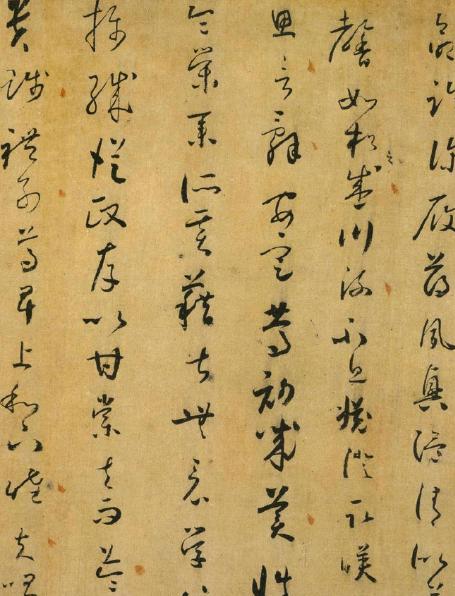 命臨深履薄夙興溫清似
馨如松之盛川流不息淵澄取暎
思言辭安定篤初誠美慎
令榮業所基藉甚無竟學
攝職從政存以甘棠去而益
貴賤禮別尊卑上和下睦夫唱